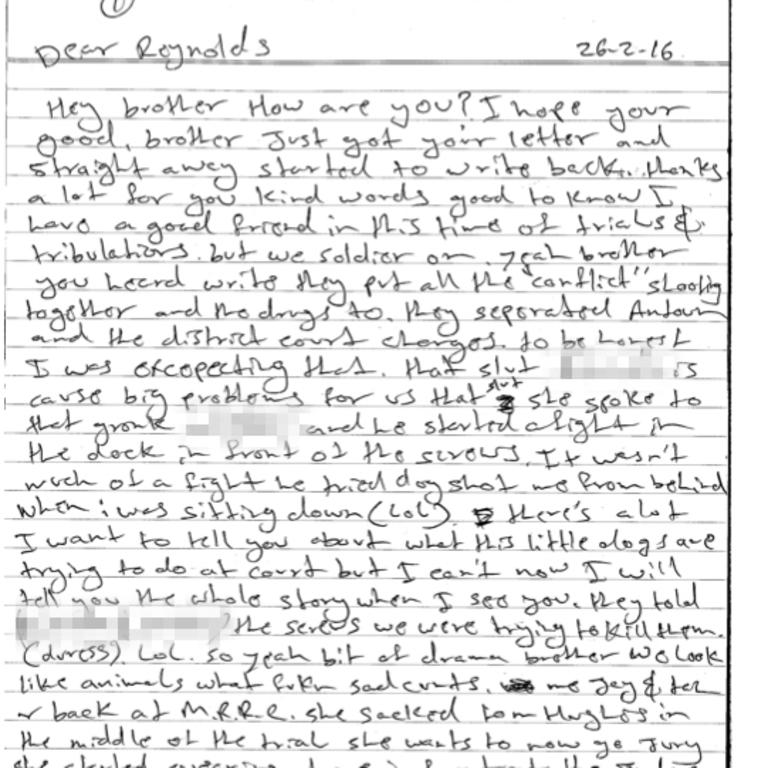 ①
Dear Reynolds 26-2-16
Hey brother How are you? I hope your
good, brother Just got your letter and
straight away started to write back. thanks
a lot for you kind words good to know I
have a good friend in this time of trials &
tribulations. but we soldier on. yeah brother
you heard write they put all the "conflict" shooting
together and the drugs to. they seperated Antoun
and the district court charges. to be honest
I was excopecting that. that slut is
cause big problems for us that slut she spoke to
that gronk and he started a fight in
the dock in front of the screws. It wasn't
much of a fight he tried dog shot me from behind
when i was sitting down (LoL). there's a lot
I want to tell you about what this little dogs are
trying to do at court but I can't now I will
tell you the whole story when I see you. they told
the screws we were trying to kill them.
(duress). LoL. so yeah bit of drama brother we look
like animals what fukn sadcunts. me Jay &
back at M.R.R.C. she sacked tom Hughes in
the middle of the trial she wants to now go Jury
she started